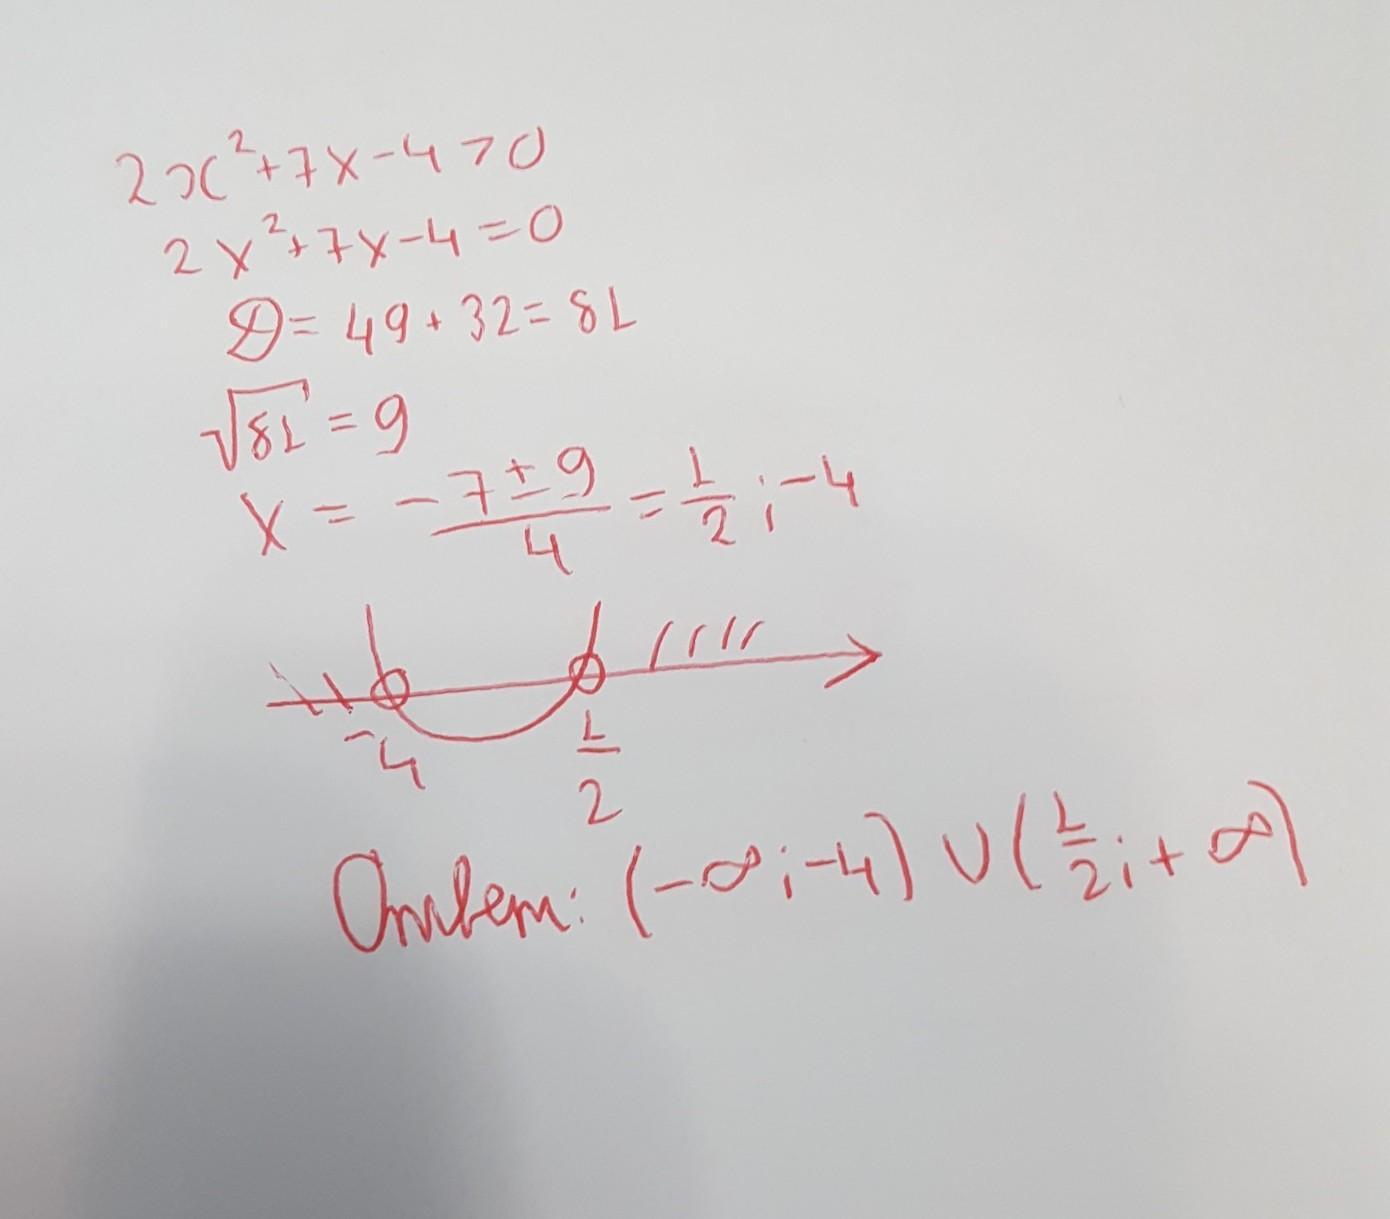 2x²+7x-4>0
2x²+7x-4=0
D=49+32=81
√81=9
x=(-7±9)/4=1/2;-4
-4 1/2
Ответ: (-∞;-4)∪(1/2;+∞)